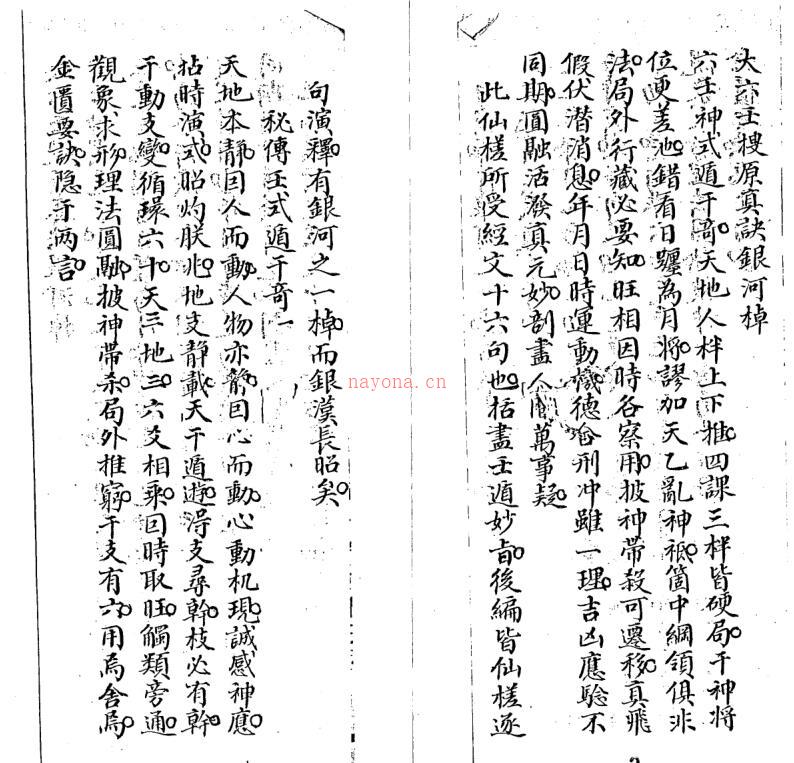 大六壬搜源真訣銀河棹
六壬神式遁干奇天地人柈上下推四課三柈皆硬局干神將
位更差池錯看日躔為月將謬加天乙亂神祗箇中綱領俱非
法局外行藏必要知旺相因時各察用披神帶殺可遷移真飛
假伏潜消息年月日時運動 德 刑冲雖一理吉凶應驗不
同期圓融活潑真元妙剖盡人間萬事疑
此仙槎所受經文十六句也括盡壬遁妙旨後編皆仙槎逐
句演釋有銀河之一棹而銀漢長昭矣
秘傳壬式遁干奇一
天地本靜因人而動人物亦静因心而動心動机現誠感神應
拈時演式昭灼朕兆地支靜載天干遁遊得支尋幹枝必有幹
干動支變循環六十天三地三六爻相乘因時取旺觸類旁通
觀象求形理法圓融披神帶杀局外推窮干支有六用焉舍焉
金匱要訣隐于兩言
nayona.cn